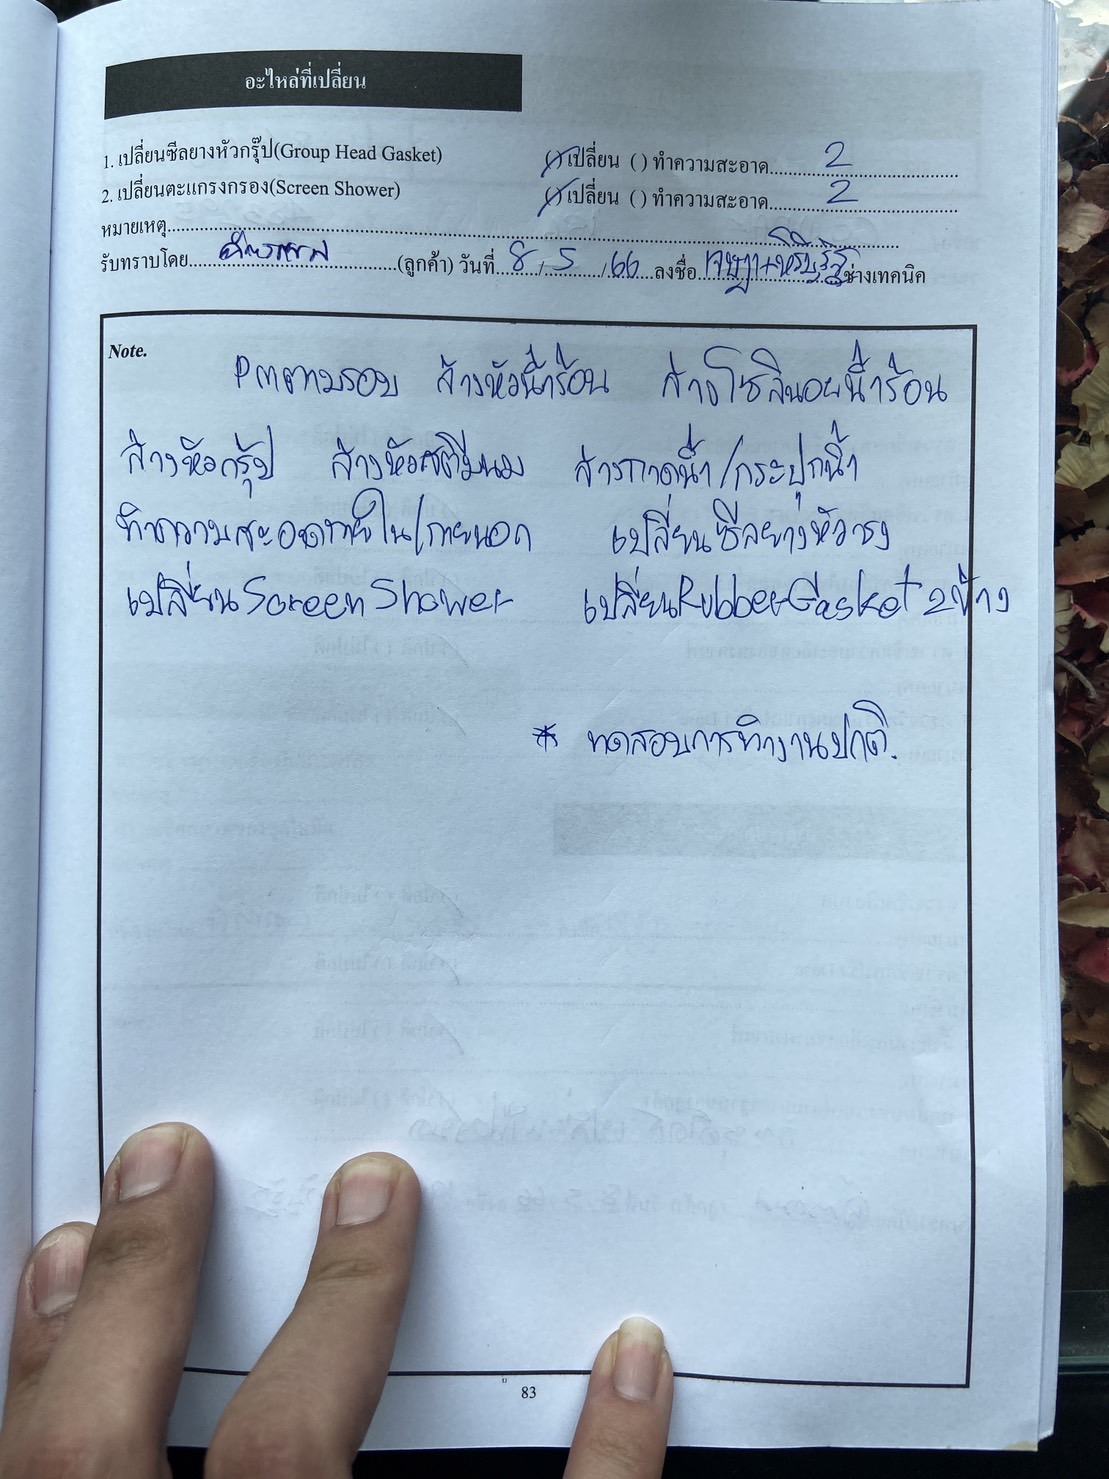 อะไหล่ที่เปลี่ยน
1. เปลี่ยนซีลยางหัวกรุ๊ป(Group Head Gasket) (/) เปลี่ยน ( ) ทำความสะอาด 2
2. เปลี่ยนตะแกรงกรอง(Screen Shower) (/) เปลี่ยน ( ) ทำความสะอาด 2
หมายเหตุ
รับทราบโดย (ลูกค้า) วันที่ 8 / 5 / 66 ลงชื่อ ช่างเทคนิค
Note.
Pmตามรอบ ล้างหัวน้ำร้อน ล้างโซลินอยน้ำร้อน
ล้างหัวกรุ้ป ล้างหัวสตีมนม ล้างถาดน้ำ/กระปุกน้ำ
ทำความสะอาดภายใน/ภายนอก เปลี่ยนซีลยางหัวชง
เปลี่ยนScreen Shower เปลี่ยนRubberGasket 2ข้าง
* ทดสอบการทำงานปกติ.
83